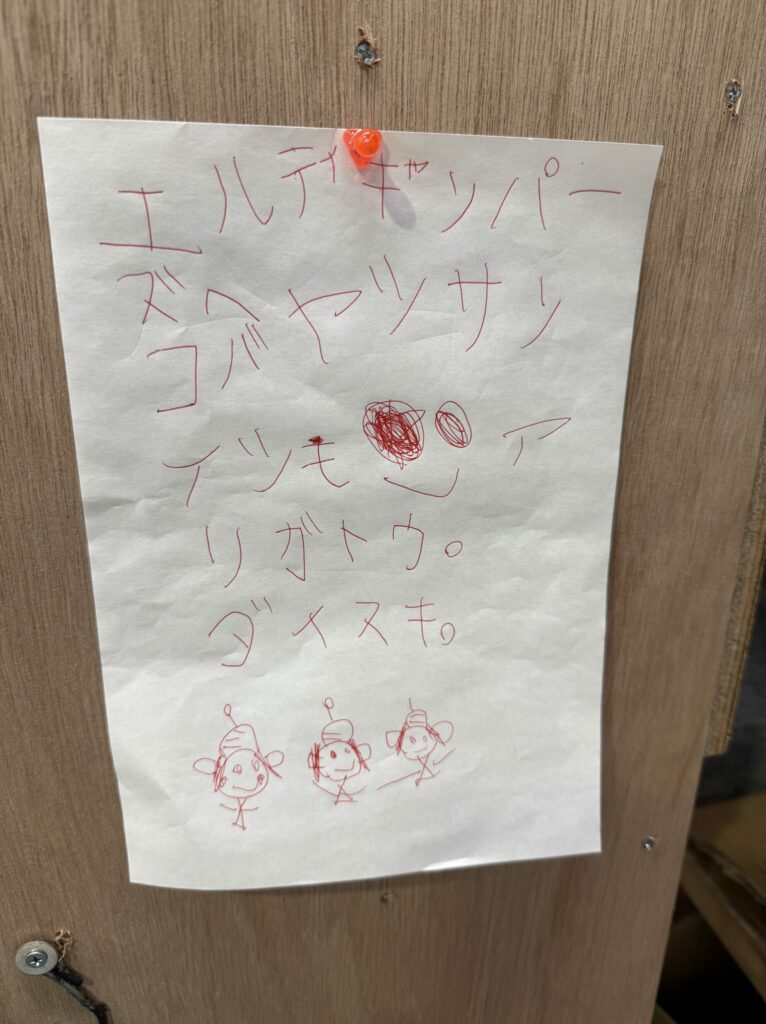 エルディギッパー
ズヘヤツサン
コバ
イツモ ア
リガトウ。
ダイスキ。